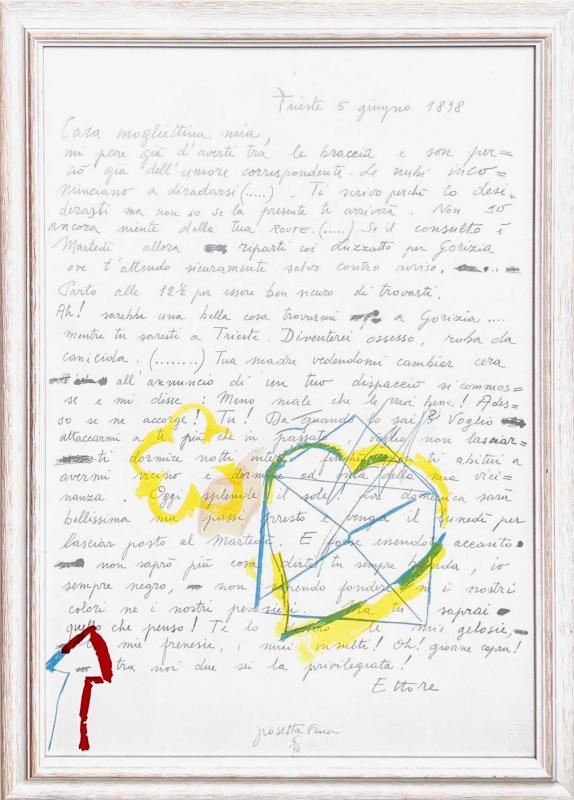 Trieste 5 giugno 1898
Cara mogliettina mia,
mi pare già d'averti tra le braccia e son per=
ciò già dell'umore corrispondente. Le nubi inco=
minciano a diradarsi (.....). Ti scrivo perché lo desi=
derasti ma non so se la presente ti arriverà. Non so
ancora niente della tua ROUTE. (.....). Se il consulto è
Martedì allora riparti coi dizzatto per Gorizia
ove t'attendo sicuramente salvo contro avviso.
Parto alle 12½ per essere ben sicuro di trovarti.
Ah! sarebbe una bella cosa trovarmi a Gorizia ....
mentre tu saresti a Trieste. Diventerei ossesso, roba da
canicida. (........) Tua madre vedendomi cambiar cera
all'annuncio di un tuo dispaccio si commos=
se e mi disse: Meno male che le vuoi bene! Ades=
so se ne accorge! Tu! Da quando lo sai? Voglio
attaccarmi a te più che in passato, voglio non lasciar=
ti dormire notti intere finché non ti abitui a
avermi vicino e dormire ad onta della mia vici=
nanza. Oggi splende il sole! La domenica sarà
bellissima ma passi presto e venga il lunedì per
lasciar posto al Martedì. E forse essendoti accanto
non saprò più cosa dirti tu sempre bionda, io
sempre negro, non sapendo fondere né i nostri
colori né i nostri pensieri. Ma tu saprai
quello che penso! Te lo le mie gelosie,
le mie frenesie, i miei insulti! Oh! giovine capra!
tra noi due sei la privilegiata!
Ettore
Giosetta Fioroni
6/90